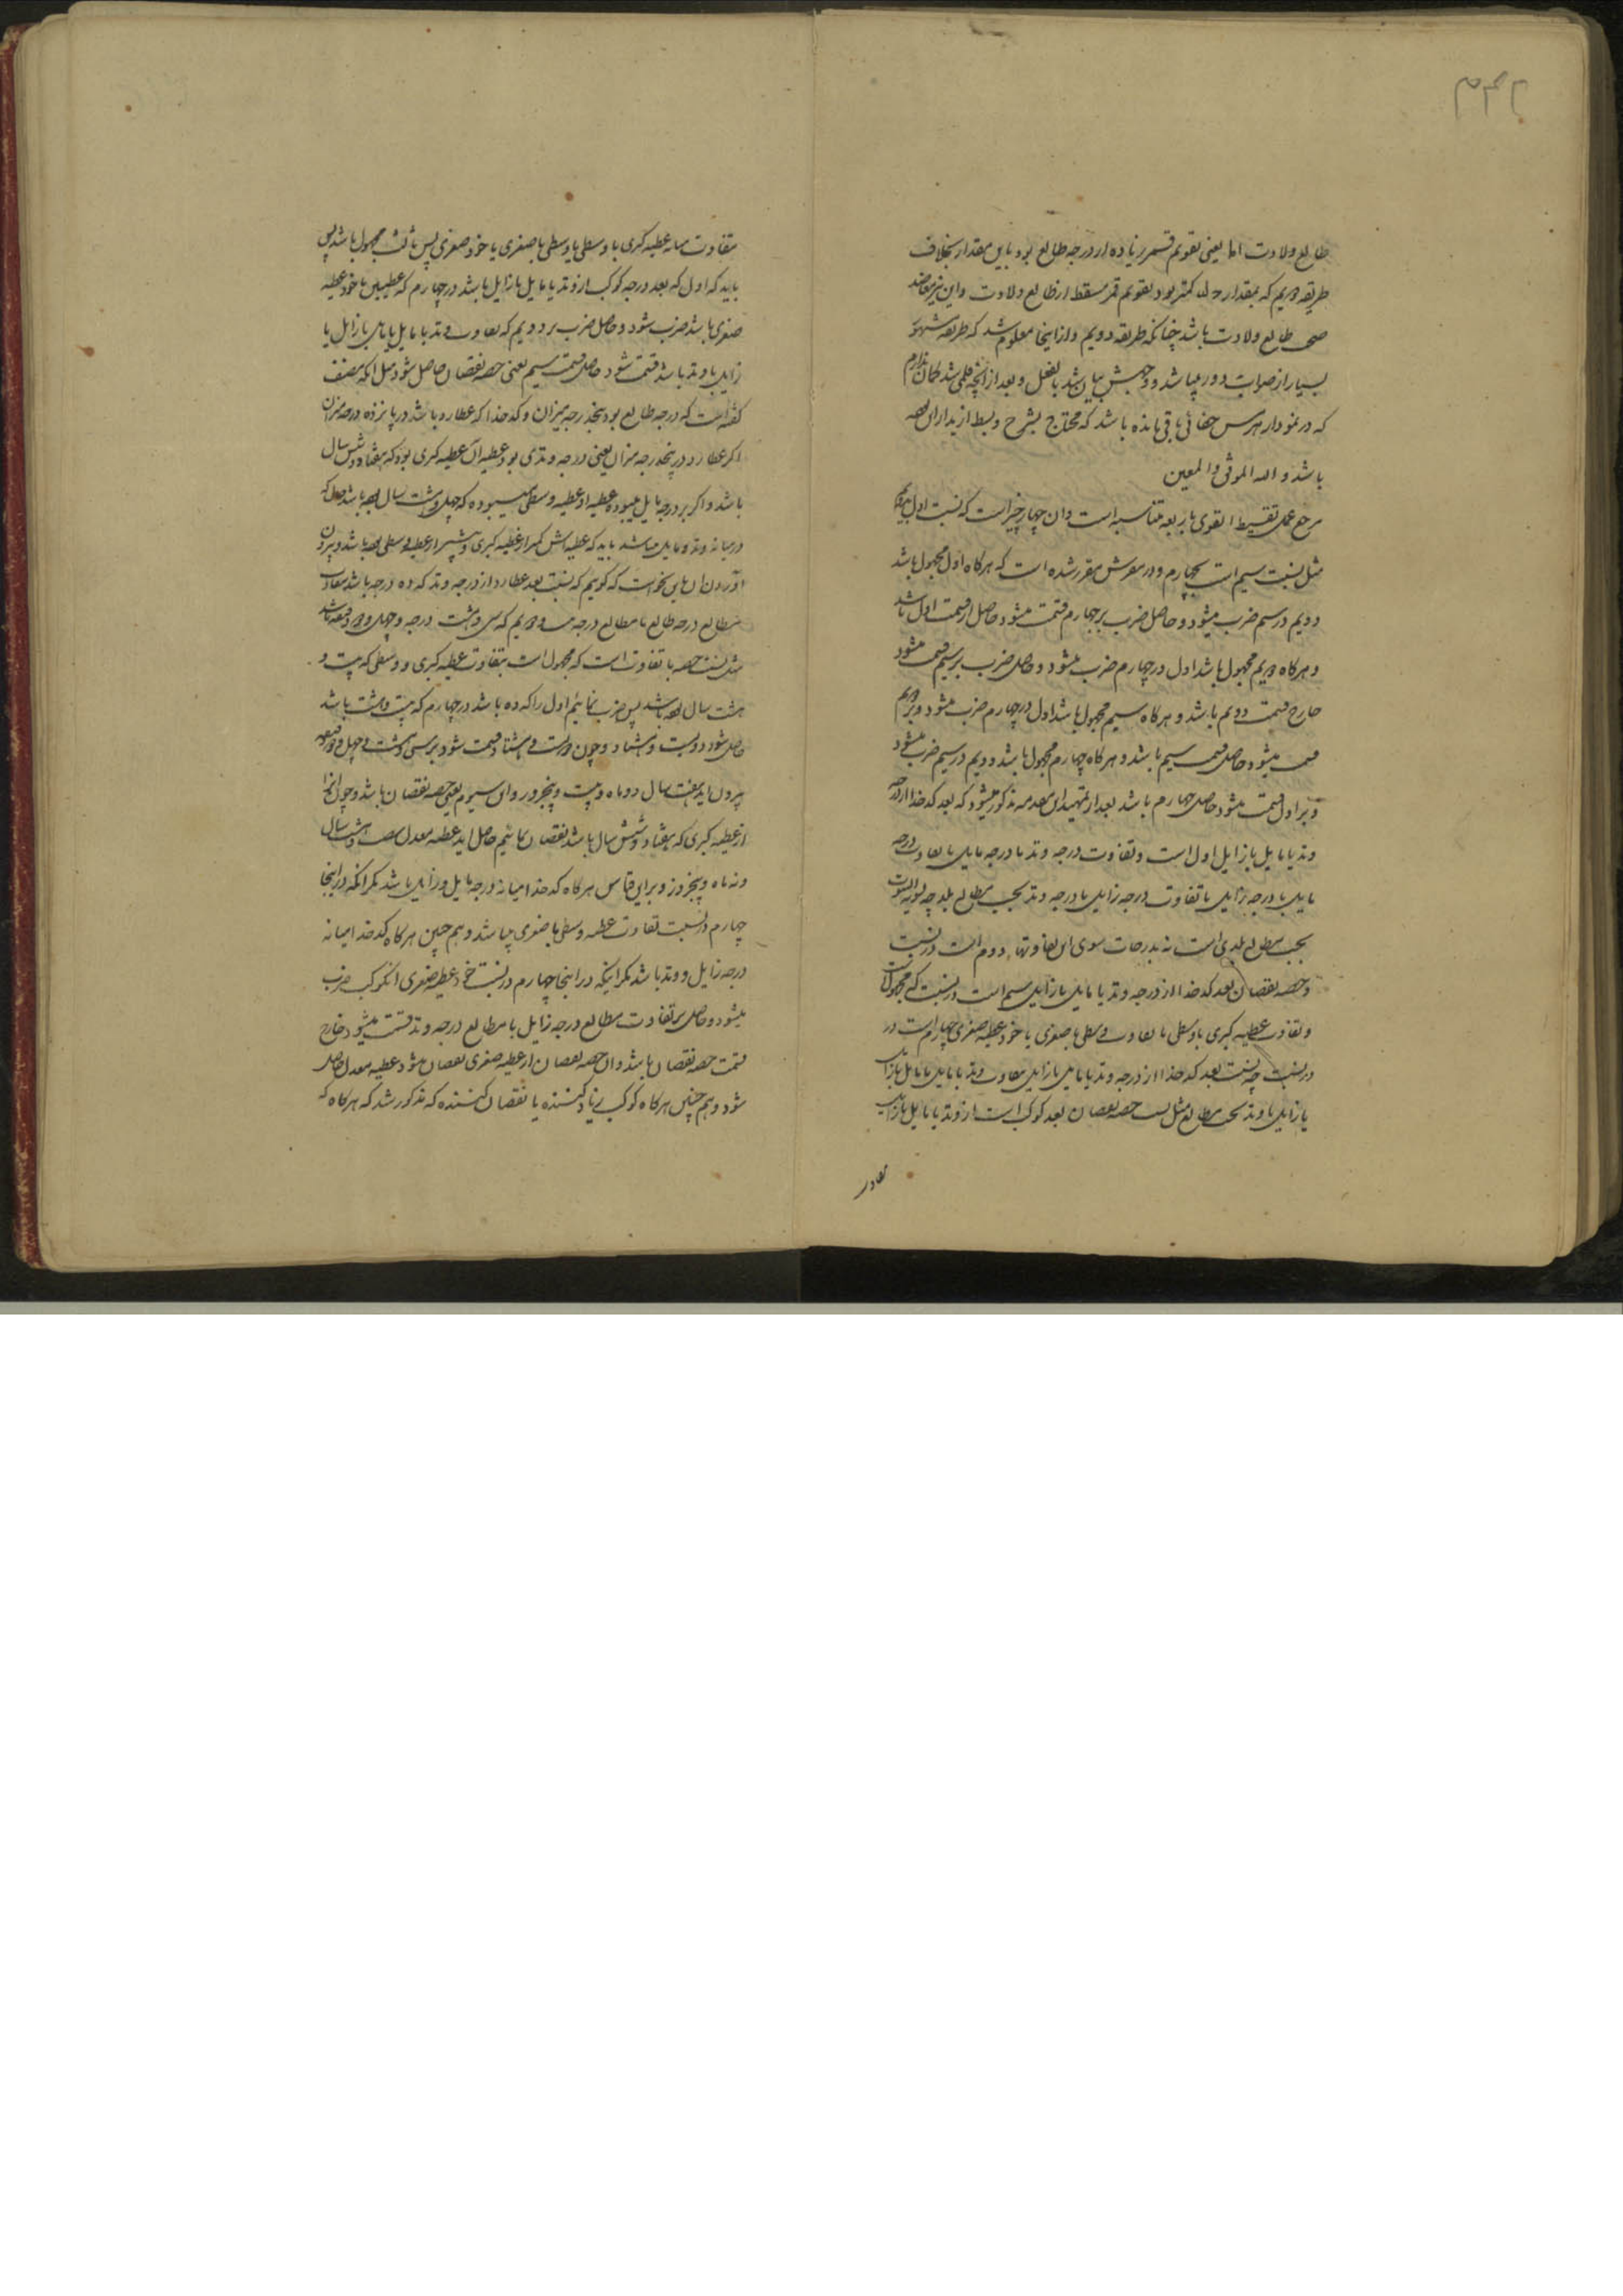 ۲۴۲
طالع ولادت اما یعنی تقویم قمر زیاده از درجه طالع بود باین مقدار بخلاف
طریقه دویم که بمقدار کمتر بود تقویم قمر مسقط از طالع ولادت و این نیز
طالع ولادت باشد چنانکه طریقه دویم و از اینجا معلوم شد که طریقه مشهور
بسیار از صواب دور میباشد و وجهش بیان شد بالفعل و بعد از آنچه قلمی شد گمان ندارم
که در نمودار هرمس خفائی باقی مانده باشد که محتاج بشرح و بسط ازید از این
باشد و الله الموفق و المعین
مرجع عمل تقسیط القوی باربعه متناسبه است و ان چهار چیز است که نسبت اول بدویم
مثل نسبت سیم است بچهارم و در موضعش مقرر شده است که هرگاه اول مجهول باشد
دویم در سیم ضرب میشود و حاصل ضرب بر چهارم قسمت میشود حاصل از قسمت اول باشد
و هرگاه دویم مجهول باشد اول در چهارم ضرب میشود و حاصل ضرب بر سیم قسمت میشود
خارج قسمت دویم باشد و هرگاه سیم مجهول باشد اول در چهارم ضرب میشود و بر دویم
قسمت میشود حاصل قسمت سیم باشد و هرگاه چهارم مجهول باشد دویم در سیم ضرب میشود
و بر اول قسمت میشود حاصل چهارم باشد بعد از تمهید این مقدمه مذکور میشود که بعد کدخدا از درجه
وتد یا مایل یا زایل اول است و تفاوت درجه وتد با درجه مایل یا تفاوت درجه
مایل با درجه زایل یا تفاوت درجه زایل با درجه وتد بحسب مطالع بلد چه تسویة البیوت
بحسب مطالع بلدی است نه بدرجات سوی این تفاوتها دوم است در نسبت
و حصه نقصان بعد کدخدا از درجه وتد یا مایل یا زایل سیم است در نسبت که مجهول است
و تفاوت عطیه کبری با وسطی یا تفاوت وسطی با صغری یا خود عطیه صغری چهارم است در
در نسبت چه نسبت بعد کدخدا از درجه وتد یا مایل یا زایل بتفاوت وتد با مایل یا مایل با زایل
یا زایل با وتد بحسب مطالع مثل نسبت حصه نقصان بعد کوکب است از وتد یا مایل یا زایل
بتفاوت
بتفاوت میانه عطیه کبری با وسطی یا وسطی با صغری یا خود صغری پس ثالث مجهول باشد پس
باید که اول که بعد درجه کوکب از وتد یا مایل یا زایل باشد در چهارم که عطیتین یا خود عطیه
صغری باشد ضرب شود و حاصل ضرب بر دویم که تفاوت وتد با مایل یا مایل با زایل یا
زایل با وتد باشد قسمت شود حاصل قسمت سیم یعنی حصه نقصان حاصل شود مثل انکه مصنف
گفته است که درجه طالع بود پنجدرجه میزان و کدخدا که عطارد باشد در پانزده درجه میزان
اگر عطارد در پنجدرجه میزان یعنی درجه وتدی بود عطیه آن عطیه کبری بود که هفتاد و شش سال
باشد و اگر بر درجه مایل میبود عطیه او عطیه وسطی میبوده که چهل و هشت سال باشد چون که
در میانه وتد و مایل میباشد باید که عطیه اش کمتر از عطیه کبری و بیشتر از عطیه وسطی باشد و بیرون
آوردن ان باین نحو است که گوییم که نسبت بعد عطارد از درجه وتد که ده درجه باشد بتفاوت
مطالع درجه طالع با مطالع درجه دویم که سی و هشت درجه و چهل و دو دقیقه باشد
مثل نسبت حصه با تفاوت است که مجهول است بتفاوت عطیه کبری و وسطی که بیست و
هشت سال باشد پس ضرب نمائیم اول را که ده باشد در چهارم که بیست و هشت باشد
حاصل شود دویست و هشتاد و چون دویست و هشتاد قسمت شود بر سی و هشت و چهل و دو دقیقه
بیرون اید هفت سال دو ماه و بیست و پنجروز و این سیوم یعنی حصه نقصان باشد و چون انرا
از عطیه کبری که هفتاد و شش سال باشد نقصان نمائیم حاصل اید عطیه معدل شصت و هشت سال
و نه ماه و پنجروز و براین قیاس هرگاه کدخدا میانه درجه مایل و زایل باشد مگر انکه در اینجا
چهارم در نسبت تفاوت عطیه وسطی با صغری میباشد و هم چنین هرگاه کدخدا میانه
درجه زایل و وتد باشد مگر اینکه در اینجا چهارم در نسبت خود عطیه صغری انکوکب ضرب
میشود و حاصل بر تفاوت مطالع درجه زایل با مطالع درجه وتد قسمت میشود خارج
قسمت حصه نقصان باشد و ان حصه نقصان از عطیه صغری نقصان میشود عطیه معدل حاصل
شود و هم چنین هرگاه کوکب زیاد کننده یا نقصان کننده که مذکور شد که هرگاه که